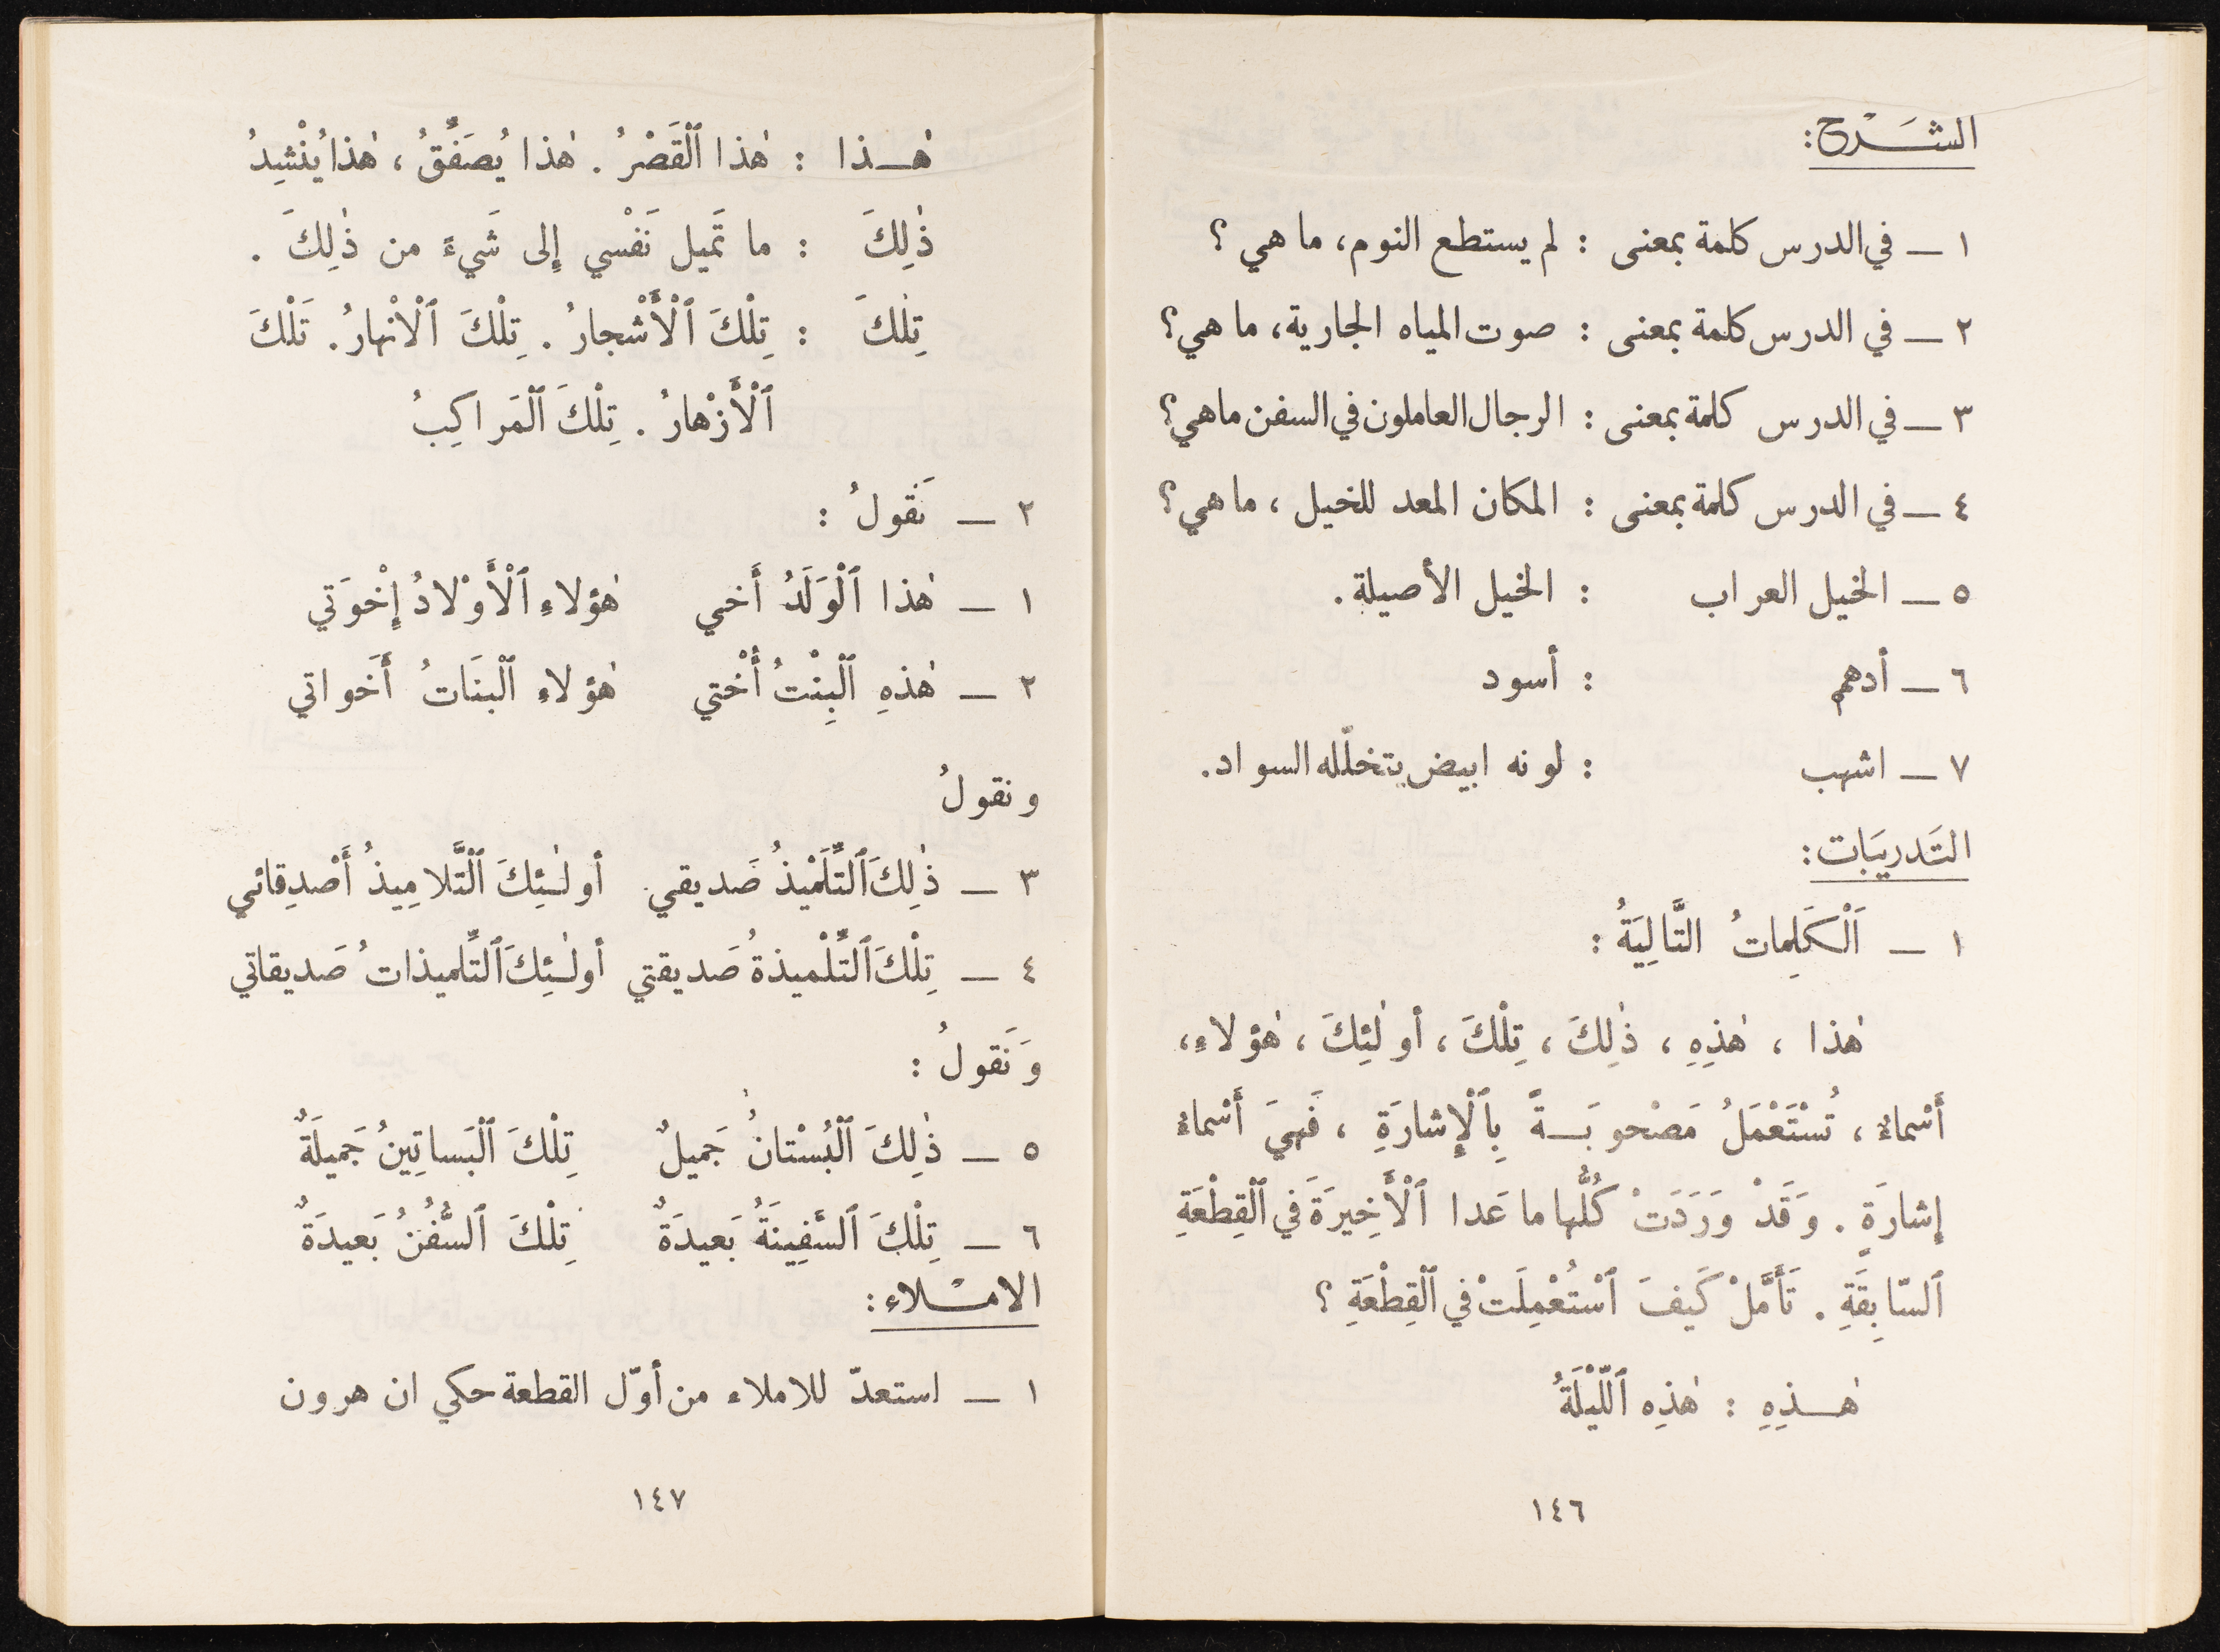 الشَرْح:
١ — في الدرس كلمة بمعنى : لم يستطع النوم، ما هي ؟
٢ — في الدرس كلمة بمعنى : صوت المياه الجارية، ما هي؟
٣ — في الدرس كلمة بمعنى : الرجال العاملون في السفن ماهي؟
٤ — في الدرس كلمة بمعنى : المكان المعد للخيل ، ما هي؟
٥ — الخيل العراب : الخيل الأصيلة.
٦ — أدهم : أسود
٧ — اشهب : لونه ابيض يتخلّله السواد.
التَدريبَات:
١ — اَلْكَلِماتُ التَّالِيَةُ :
هٰذا ، هٰذِهِ ، ذٰلِكَ ، تِلْكَ ، أولٰئِكَ ، هٰؤلاءِ،
أَسْماءٌ ، تُسْتَعْمَلُ مَصْحوبَـةً بِٱلْإِشارَةِ ، فَهِيَ أَسْماءُ
إِشارَةٍ . وَقَدْ وَرَدَتْ كُلُّها ما عَدا ٱلْأَخِيرَةَ في ٱلْقِطْعَةِ
ٱلسّابِقَةِ . تَأَمَّلْ كَيفَ ٱسْتُعْمِلَتْ في ٱلْقِطْعَةِ ؟
هٰـذِهِ : هٰذِه ٱللَّيْلَةُ
١٤٦
هٰـذا : هٰذا ٱلْقَصْرُ . هٰذا يُصَفِّقُ ، هٰذا يُنْشِدُ
ذٰلِكَ : ما تَميل نَفْسي إِلى شَيءً من ذٰلِكَ .
تِلْكَ : تِلْكَ ٱلْأَشْجارُ . تِلْكَ ٱلْانْهارُ. تَلْكَ
ٱلْأَزْهارُ . تِلْكَ ٱلْمَراكِبُ
٢ — نَقولُ :
١ — هٰذا ٱلْوَلَدُ أَخي هٰؤلاءِ ٱلْأَوْلادُ إِخْوَتي
٢ — هٰذهِ ٱلْبِنْتُ أُخْتي هٰؤلاءِ ٱلْبنَاتُ أَخَواتي
ونقولُ
٣ — ذٰلِكَ ٱلتِّلَمْيذُ صَديقي. أولـٰئِكَ ٱلتَّلاميذُ أَصْدِقائي
٤ — تِلْكَ ٱلتِّلْميذةُ صَديقتي أولـٰئِكَ ٱلتِّلميذاتُ صَديقاتي
وَنَقولُ :
٥ — ذٰلِكَ ٱلْبُسْتانُ جَميلٌ تِلْكَ ٱلْبَساتِينُ جَميلَةٌ
٦ — تِلْكَ ٱلسَّفِينَةُ بَعيدَةٌ تِلْكَ ٱلسُّفُنُ بَعيدَةٌ
الامْـلاء:
١ — استعدّ للاملاء من أوّل القطعة حكي ان هرون
١٤٧